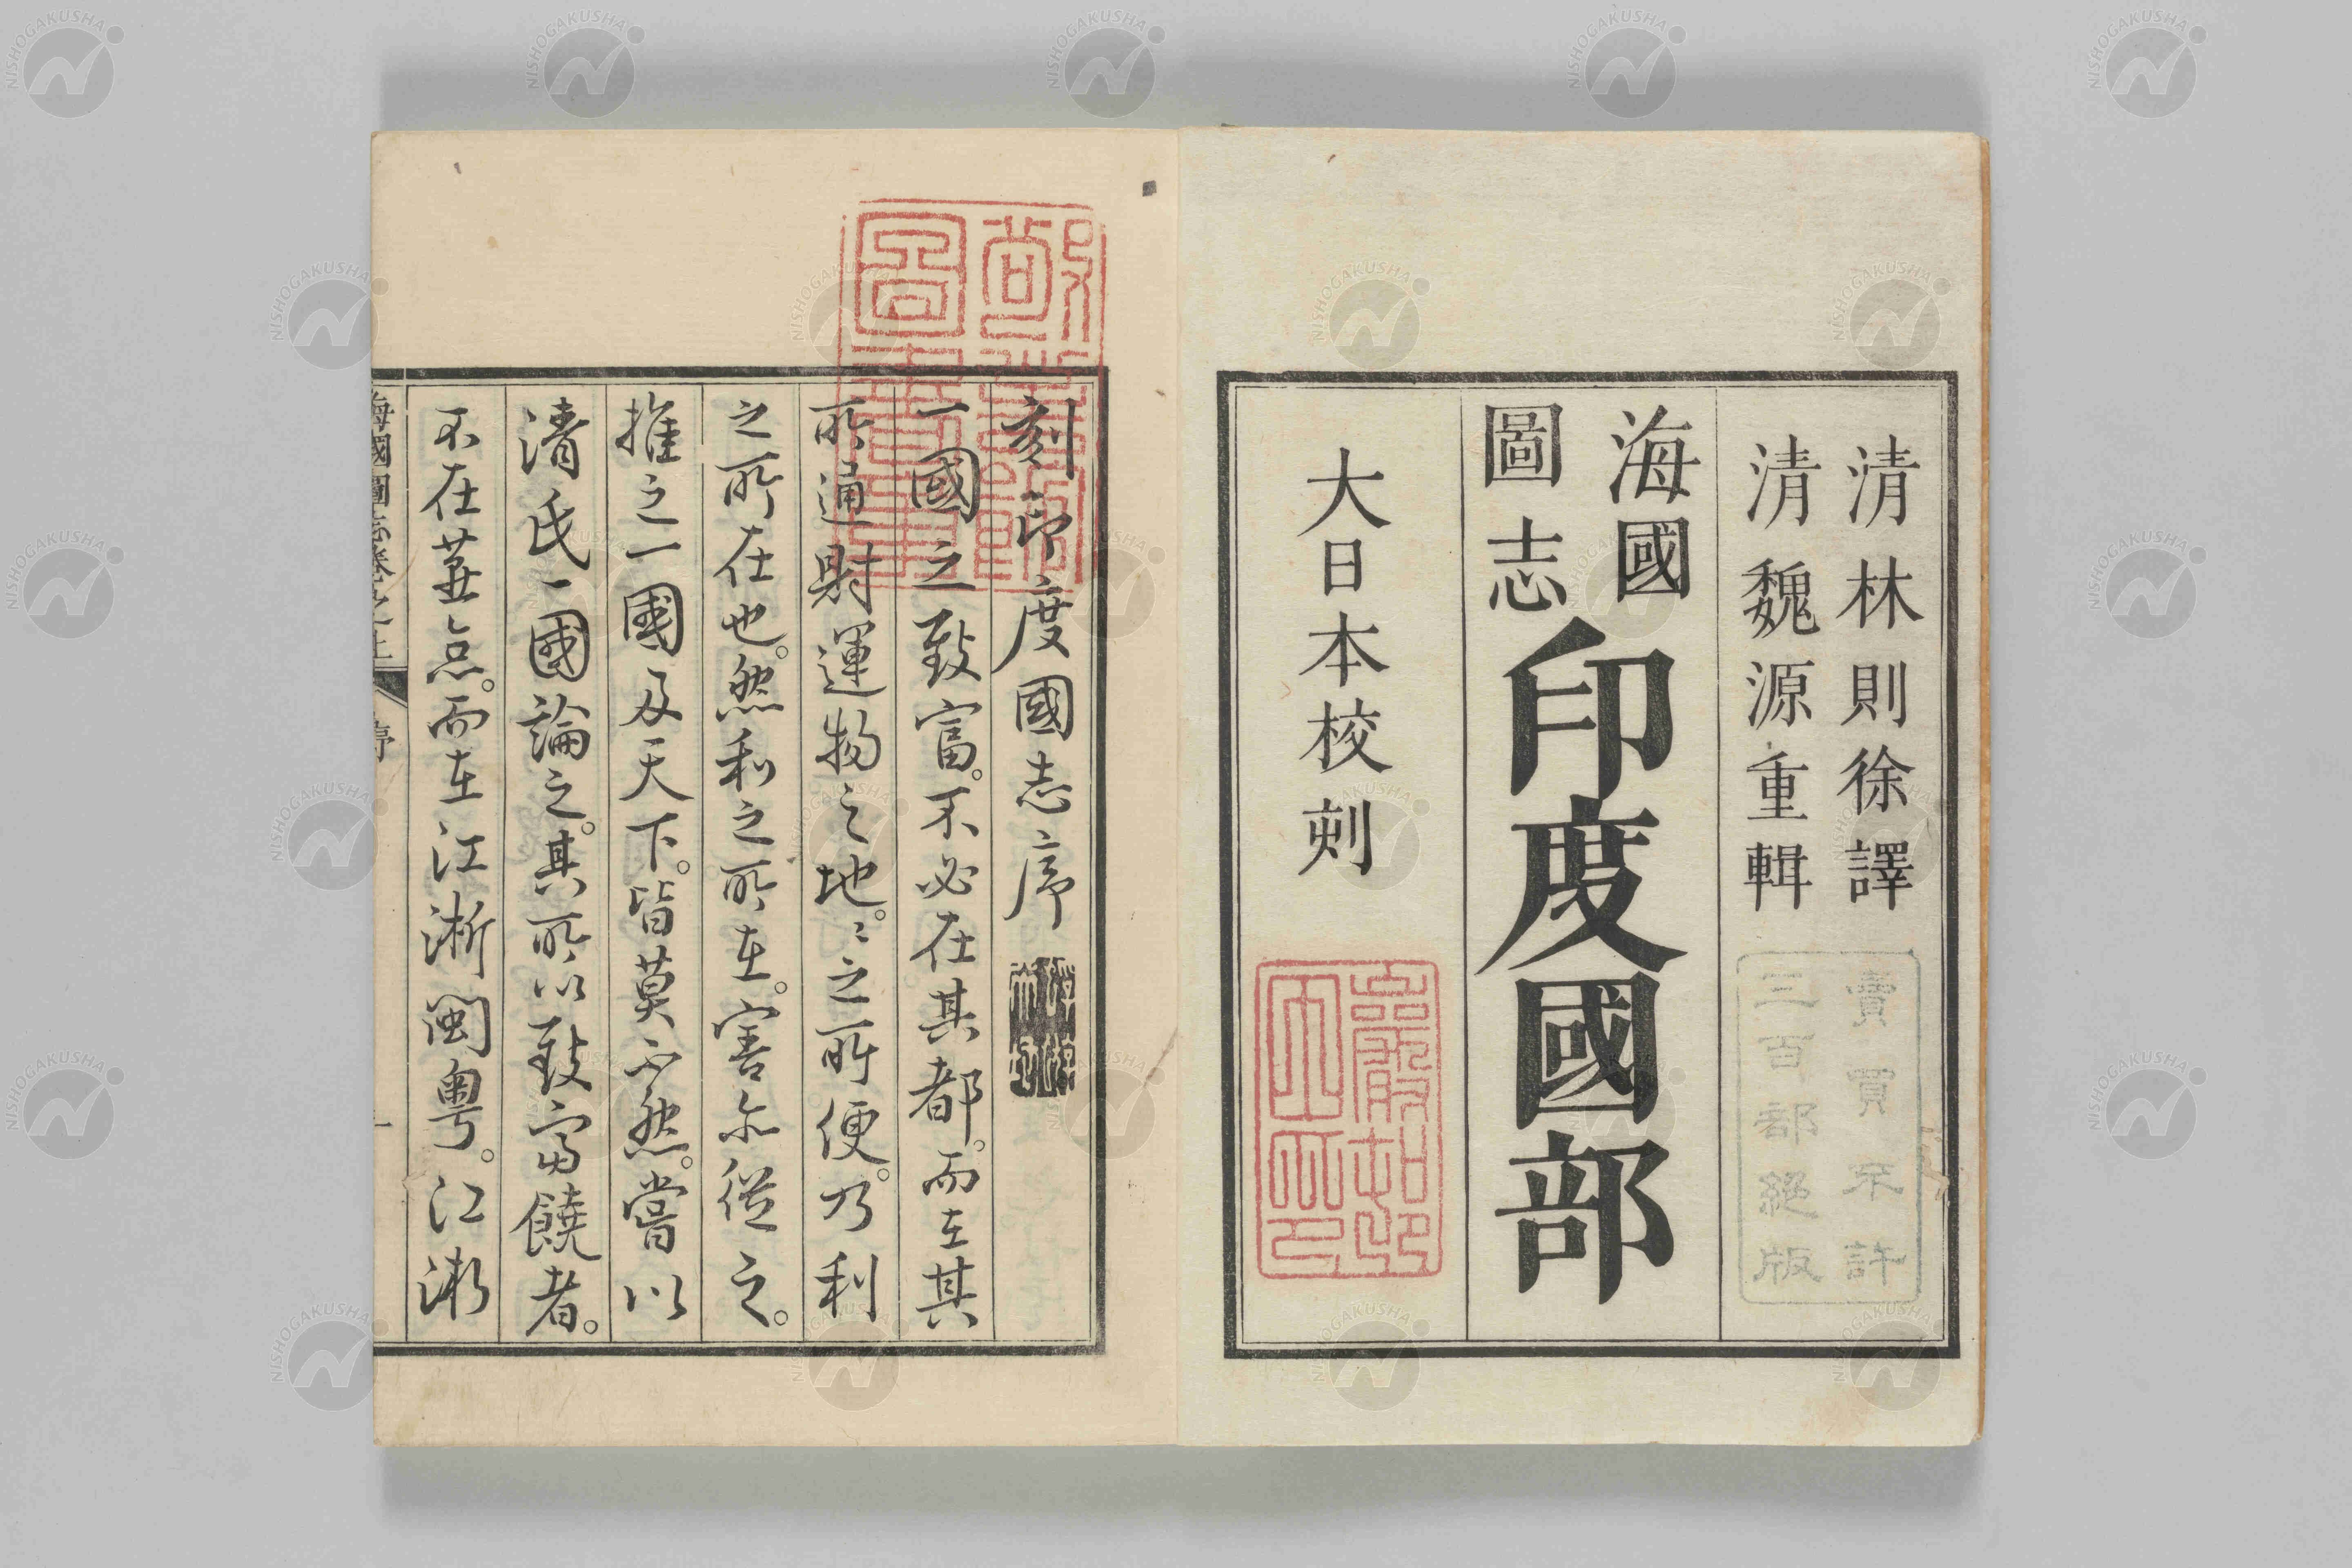 清林則徐譯
清魏源重輯
賣買不許
三百部絕版
海國
圖志
印度國部
大日本校刻
刻印度國志序
一國之致富。不必在其都。而在其
所通財運物之地。〻之所便。乃利
之所在也。然利之所在。害亦從之。
推之一國及天下。皆莫不然。嘗以
清氏一國論之。其所以致富饒者。
不在燕京。而在江浙閩粵。江浙
海國圖志卷之上
序
一
NISHOGAKUSHA